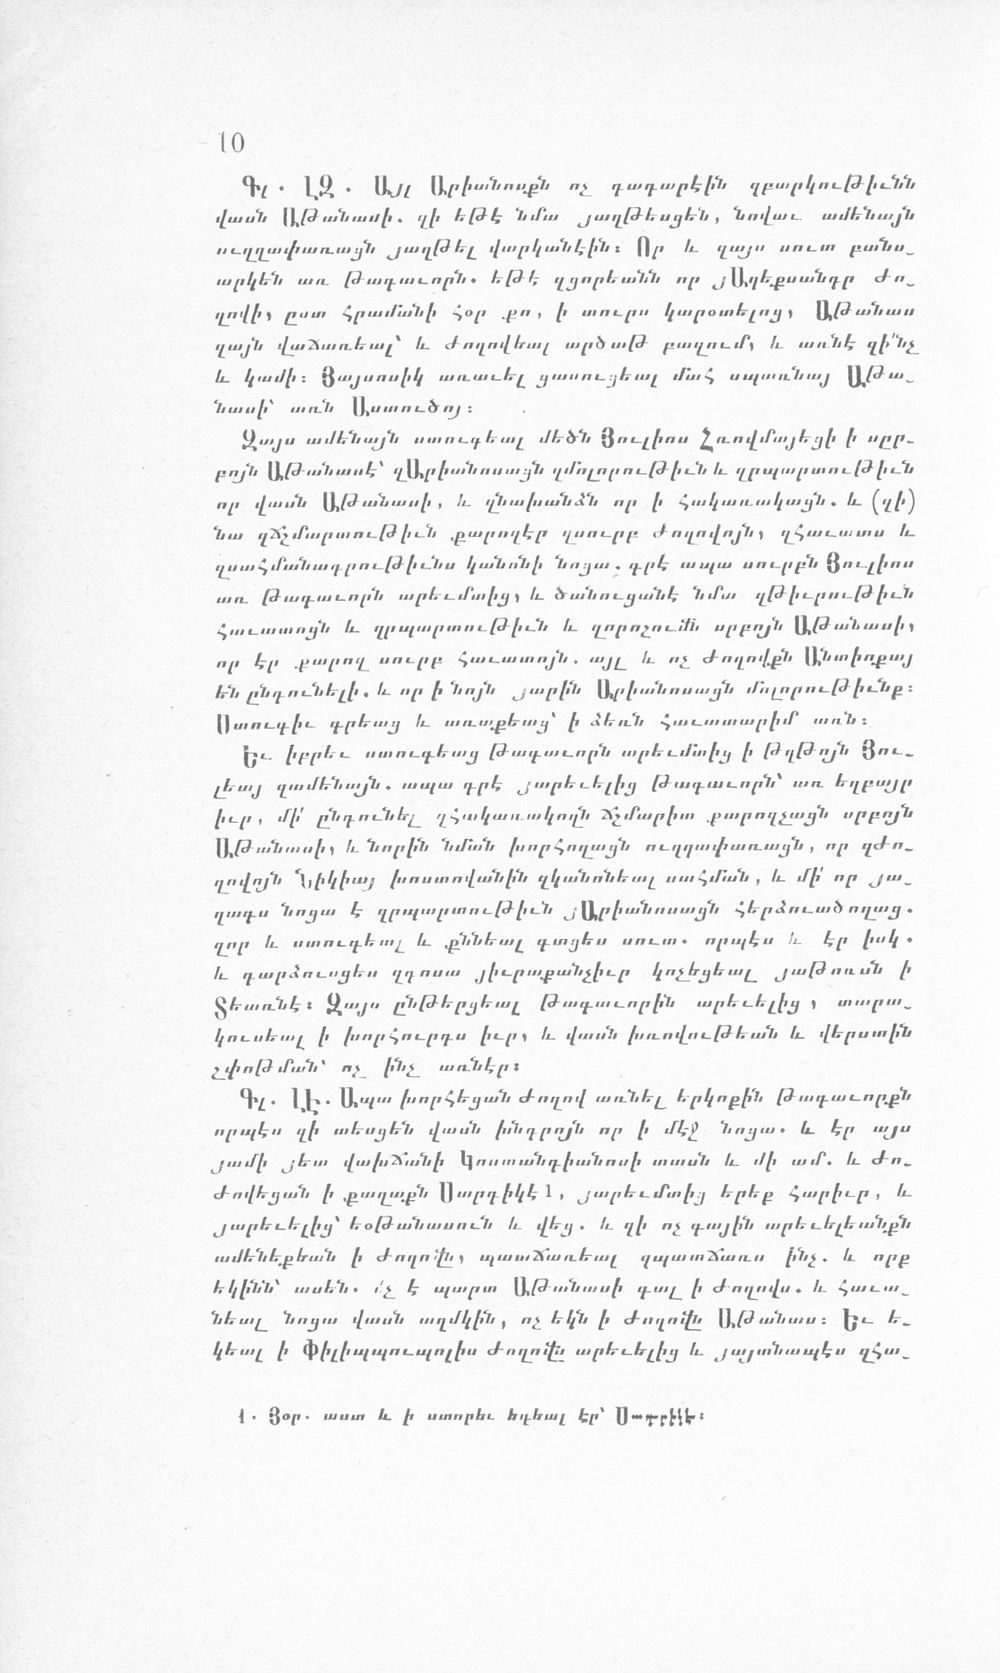 10
Գլ. ԼԶ. Այլ Արիանոսքն ոչ դադարէին զբարկութիւնն
վասն Աթանասի. զի եթէ նմա յաղթեսցեն, նովաւ ամենայն
ուղղափառացն յաղթել վարկանէին: Որ և զայս սուտ բանս_
արկեն առ թագաւորն. եթէ զցորեանն որ յԱղեքսանդր ժո_
ղովի, ըստ հրամանի հօր քո, ի տուրս կարօտելոց, Աթանաս
զայն վաճառեալ՝ և ժողովեալ արծաթ բազում, և առնէ զի՞նչ
և կամի: Յայսոսիկ առաւել ցասուցեալ մահ սպառնայ Աթա_
նասի՝ առն Աստուծոյ:
Զայս ամենայն ստուգեալ մեծն Յուլիոս Հռովմայեցի ի սըր_
բոյն Աթանասէ՝ զԱրիանոսացն զմոլորութիւն և զրպարտութիւն
որ վասն Աթանասի, և զնախանձն որ ի հակառակացն. և (զի)
նա զՃշմարտութիւն քարոզէր զսուրբ ժողովոյն, զհաւատս և
զսահմանադրութիւնս կանոնի նոցա. գրէ ապա սուրբն Յուլիոս
առ թագաւորն արեւմտից, և ծանուցանէ նմա զթիւրութիւն
հաւատոցն և զրպարտութիւն և զորոշումն սրբոյն Աթանասի,
որ էր քարոզ սուրբ հաւատոյն. այլ և ոչ ժողովքն Անտիոքայ
են ընդունելի. և որ ի նոյն յարին Արիանոսացն մոլորութիւնք:
Ստուգիւ գրեաց և առաքեաց՝ ի ձեռն հաւատարիմ առն:
Եւ իբրեւ ստուգեաց թագաւորն արեւմտից ի թղթոյն Յու_
լեայ զամենայն. ապա գրէ յարեւելից թագաւորն՝ առ եղբայր
իւր, մի՛ ընդունել զհակառակողն ճշմարիտ քարոզչացն սրբոյն
Աթանասի, և նորին նման խորհողացն ուղղափառացն, որ զժո_
ղովոյն Նիկիայ խոստովանին զկանոնեալ սահման, և մի՛ որ յա_
ղագս նոցա է զրպարտութիւն յԱրիանոսացն հերձուածողաց.
զոր և ստուգեալ և քննեալ գտցես սուտ. որպէս և էր իսկ.
և դարձուսցես զդոսա յիւրաքանչիւր կոչեցեալ յաթոռսն ի
Տեառնէ: Զայս ընթերցեալ թագաւորին արեւելից, տարա_
կուսեալ ի խորհուրդս իւր, և վասն խռովութեան և վերստին
շփոթման՝ ոչ ինչ առնէր:
Գլ. ԼԷ. Ապա խորհեցան ժողով առնել երկոքին թագաւորքն
որպէս զի տեսցեն վասն խնդրոյն որ ի մէջ նոցա. և էր այս
յամի յետ վախճանի Կոստանդիանոսի տասն և մի ամ. և ժո_
ժովեցան ի քաղաքն Սարդիկէ1, յարեւմտից երեք հարիւր, և
յարեւելից՝ եօթանասուն և վեց. և զի ոչ գային արեւելեանքն
ամենեքեան ի ժողովն, պատճառեալ զպատճառս ինչ. և որք
եկինն՝ ասեն. ոչ է պարտ Աթանասի գալ ի ժողովս. և հաւա_
նեալ նոցա վասն աղմկին, ոչ եկն ի ժողովն Աթանաս: Եւ ե_
կեալ ի Փիլիպպուպոլիս ժողովն արեւելից և յայտնապէս զհա_
1. Յօր. աստ և ի ստորեւ եդեալ էր՝ Սադրիկէ: